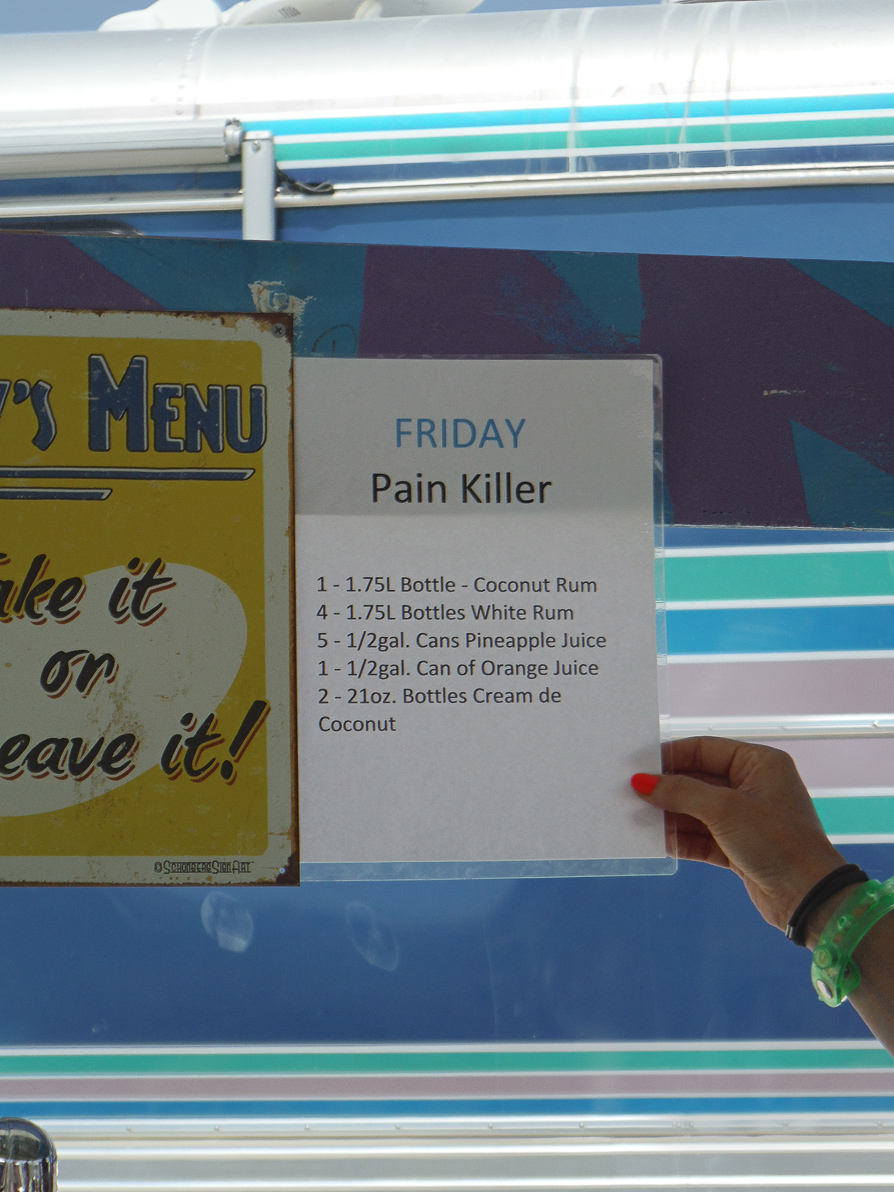 'S MENU
ake it
or
eave it!
©SCHONBERGSIGNART
FRIDAY
Pain Killer
1 - 1.75L Bottle - Coconut Rum
4 - 1.75L Bottles White Rum
5 - 1/2gal. Cans Pineapple Juice
1 - 1/2gal. Can of Orange Juice
2 - 21oz. Bottles Cream de
Coconut